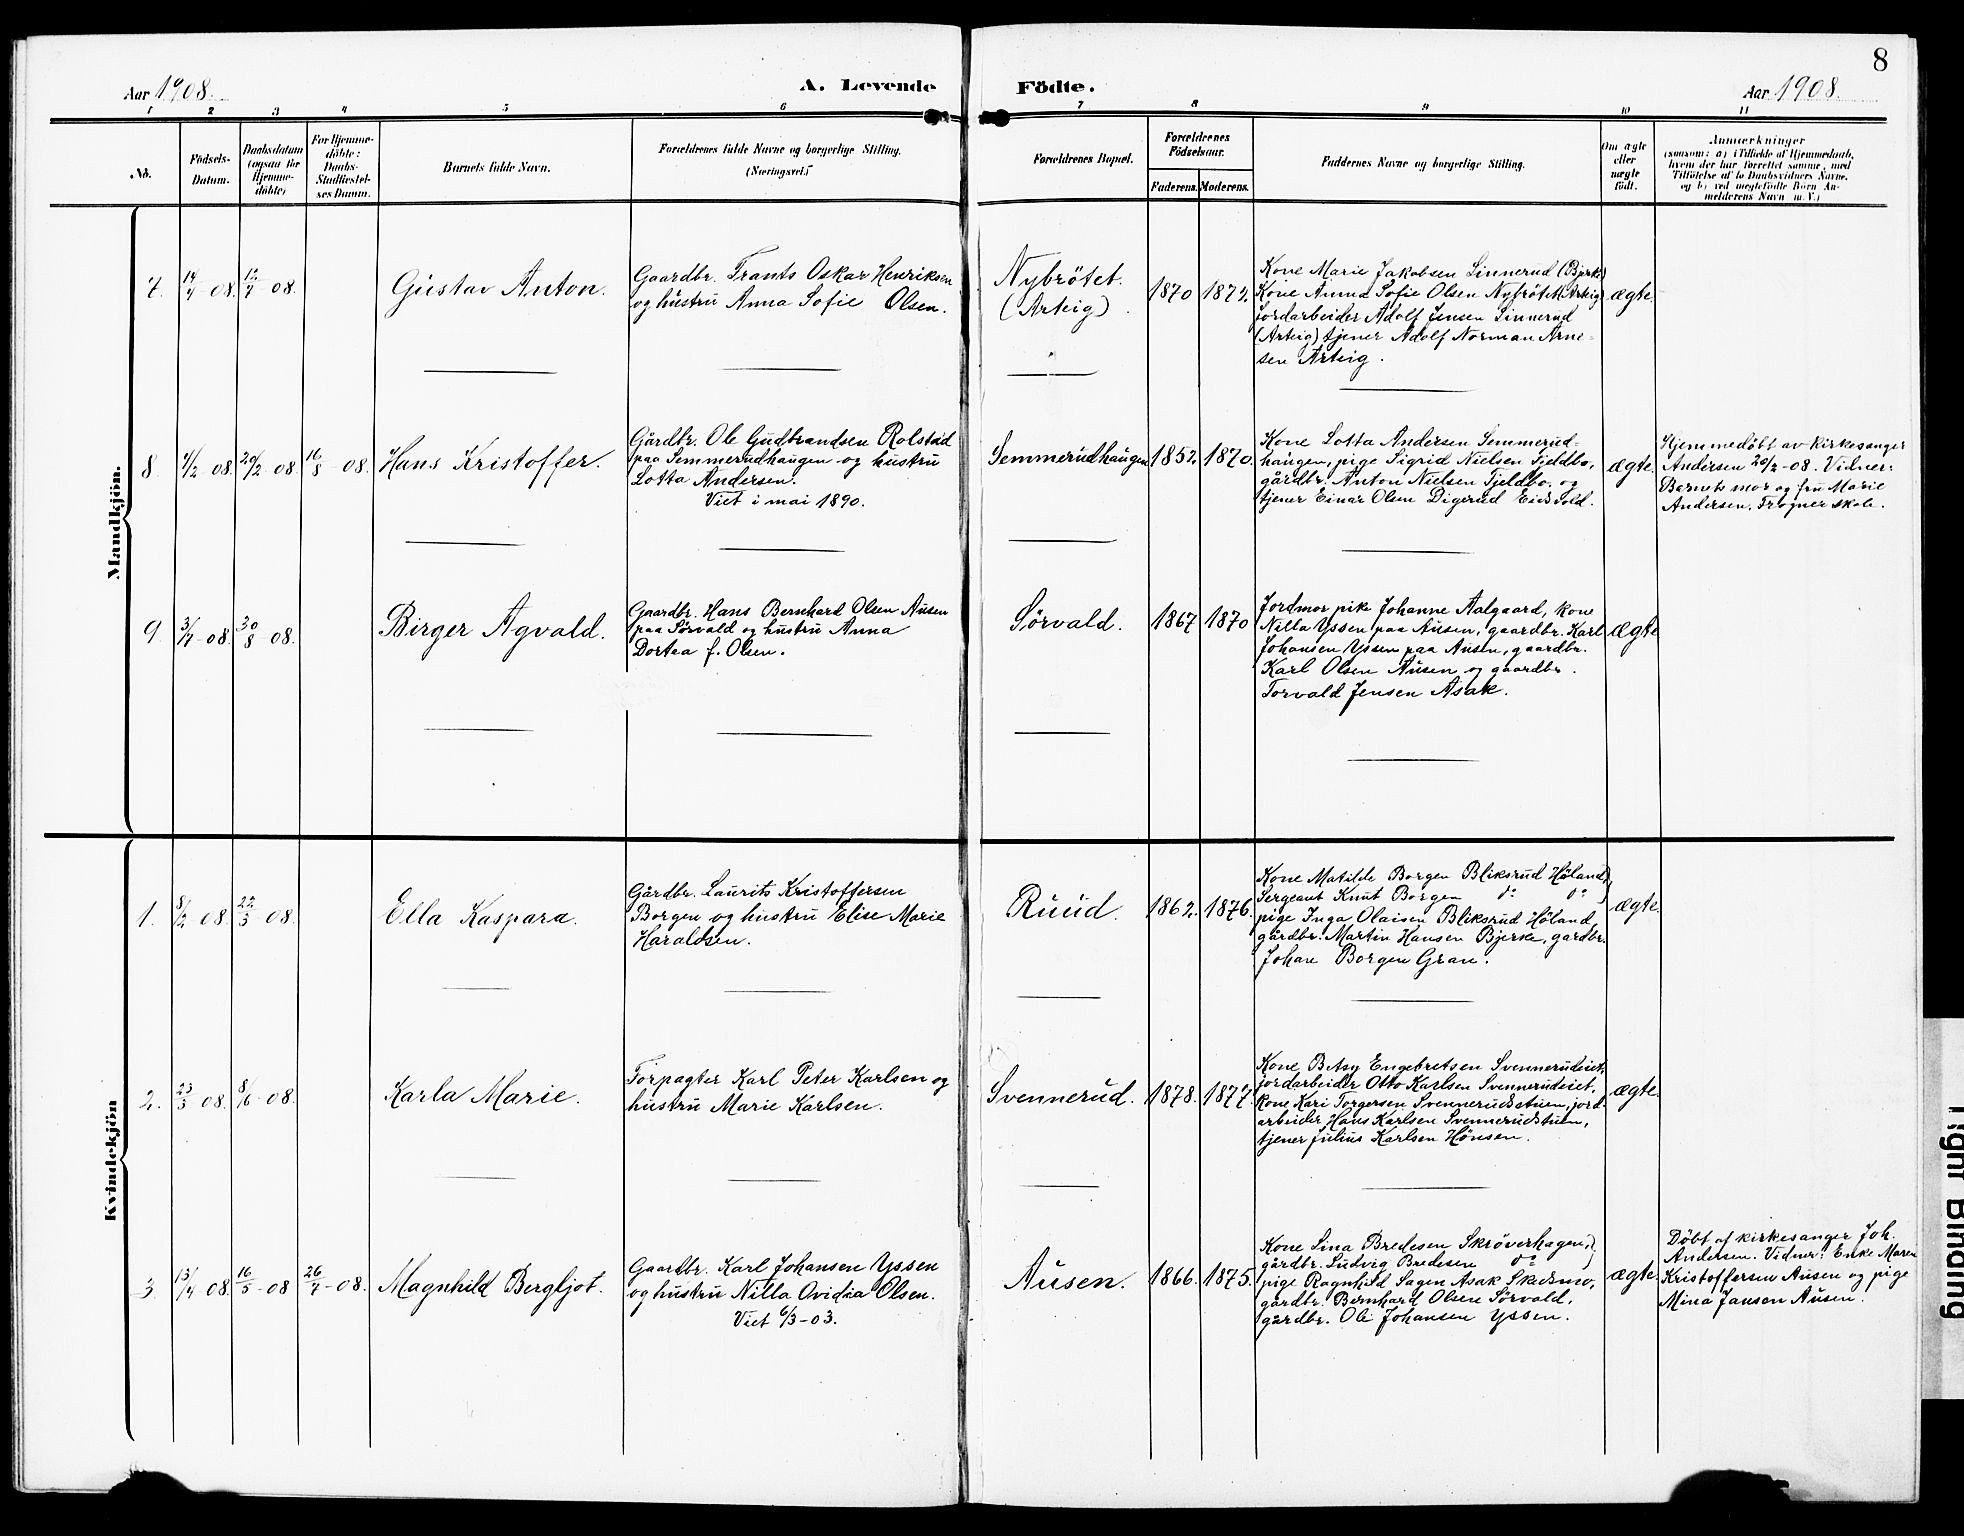 8
Aar 1908.
A. Levende
Födte.
Aar 1908.
1 2 3 4 5 6 7 8 9 10 11
No.
Födsels-
Datum.
Daabsdatum
(ogsaa for
Hjemme-
döbte)
For Hjemme-
döbte:
Daabs-
Stadfæstel-
ses Datum.
Barnets fulde Navn.
Forældrenes fulde Navne og borgerlige Stilling.
(Næringsvei.)
Forældrenes Bopæl.
Forældrenes
Födselsaar.
Faderens. Moderens.
Faddernes Navne og borgerlige Stilling.
Om ægte
eller
uægte
födt.
Anmærkninger
(saasom: a) i Tilfælde af Hjemmedaab,
hvem der har forrettet samme, med
Tilföielse af to Daabsvidners Navne,
og b) ved uægtefödte Börn An-
melderens Navn m. V.)
Mandkjön.
7. 14/4-08. 12/7 08.
Gustav Anton.
Gaardbr. Frants Oskar Henriksen
og hustru Anna Sofie Olsen.
Nybrötet.
(Arteig).
1870 1872.
Kone Marie Jakobsen Linnerud (Bjerke)
Kone Anna Sofie Olsen Nybrötet (Arteig)
Jordarbeider Adolf Jensen Linnerud
(Arteig), tjener Adolf Norman Arne-
sen Arteig.
ægte.
8. 4/2 08. 20/2 08. 16/8-08.
Hans Kristoffer.
Gårdbr. Ole Gudbrandsen Rolstad
paa Semmerudhaugen og hustru
Lotta Andersen.
Viet i mai 1890.
Semmerudhaugen
1852. 1870.
Kone Lotta Andersen Semmerud-
haugen, pige Sigrid Nielsen Fjeldbo,
gårdbr. Anton Nielsen Fjeldbo, og
tjener Einar Olsen Digerud Eidsvold.
ægte.
Hjemmedöbt av kirkesanger
Andersen 20/2-08. Vidner:
Barnets mor og fru Marie
Andersen, Frogner skole.
9. 3/7-08. 30/8 08.
Birger Agvald.
Gaardbr. Hans Bernhard Olsen Ausen
paa Sörvald og hustru Anna
Dortea f. Olsen.
Sörvald.
1867 1870
Jordmor pike Johanne Aalgaard, kone
Nilla Yssen paa Ausen, gaardbr. Karl
Johansen Yssen paa Ausen, gaardbr.
Karl Olsen Ausen og gaardbr.
Torvald Jensen Asak.
ægte
Kvindekjön
1. 8/2 08. 22/3-08.
Ella Kaspara.
Gårdbr. Laurits Kristoffersen
Borgen og hustru Elise Marie
Haraldsen.
Ruud.
1862. 1876.
Kone Matilde Borgen Bliksrud Höland,
Sergeant Knut Borgen do do
pige Inga Olaisen Bliksrud Höland,
gårdbr. Martin Hansen Bjerke, gardbr.
Johan Borgen Gran.
ægte.
2. 23/3 08. 8/6-08.
Karla Marie.
Forpagter Karl Peter Karlsen og
hustru Marie Karlsen.
Svennerud.
1878. 1877.
Kone Betsy Engebretsen Svennerudeiet,
jordarbeider Otto Karlsen Svennerudeiet,
kone Kari Torgersen Svennerudstuen, jord-
arbeider Hans Karlsen Svennerudstuen,
tjener Julius Karlsen Hönsen.
ægte.
3. 13/4 08. 16/5-08 26/7-08.
Magnhild Bergljot.
Gaardbr. Karl Johansen Yssen
og hustru Nilla Ovidia Olsen.
Viet 6/3-03.
Ausen.
1866. 1875.
Kone Lina Bredesen Skröverhagen,
gårdbr. Ludvig Bredesen do
pige Ragnhild Sagen Asak Skedsmo,
gårdbr. Bernhard Olsen Sörvald,
gårdbr. Ole Johansen Yssen.
ægte.
Döbt af kirkesanger Joh.
Andersen. Vidner: Enke Maren
Kristoffersen Ausen og pige
Mina Jansen Ausen.
Tight Binding